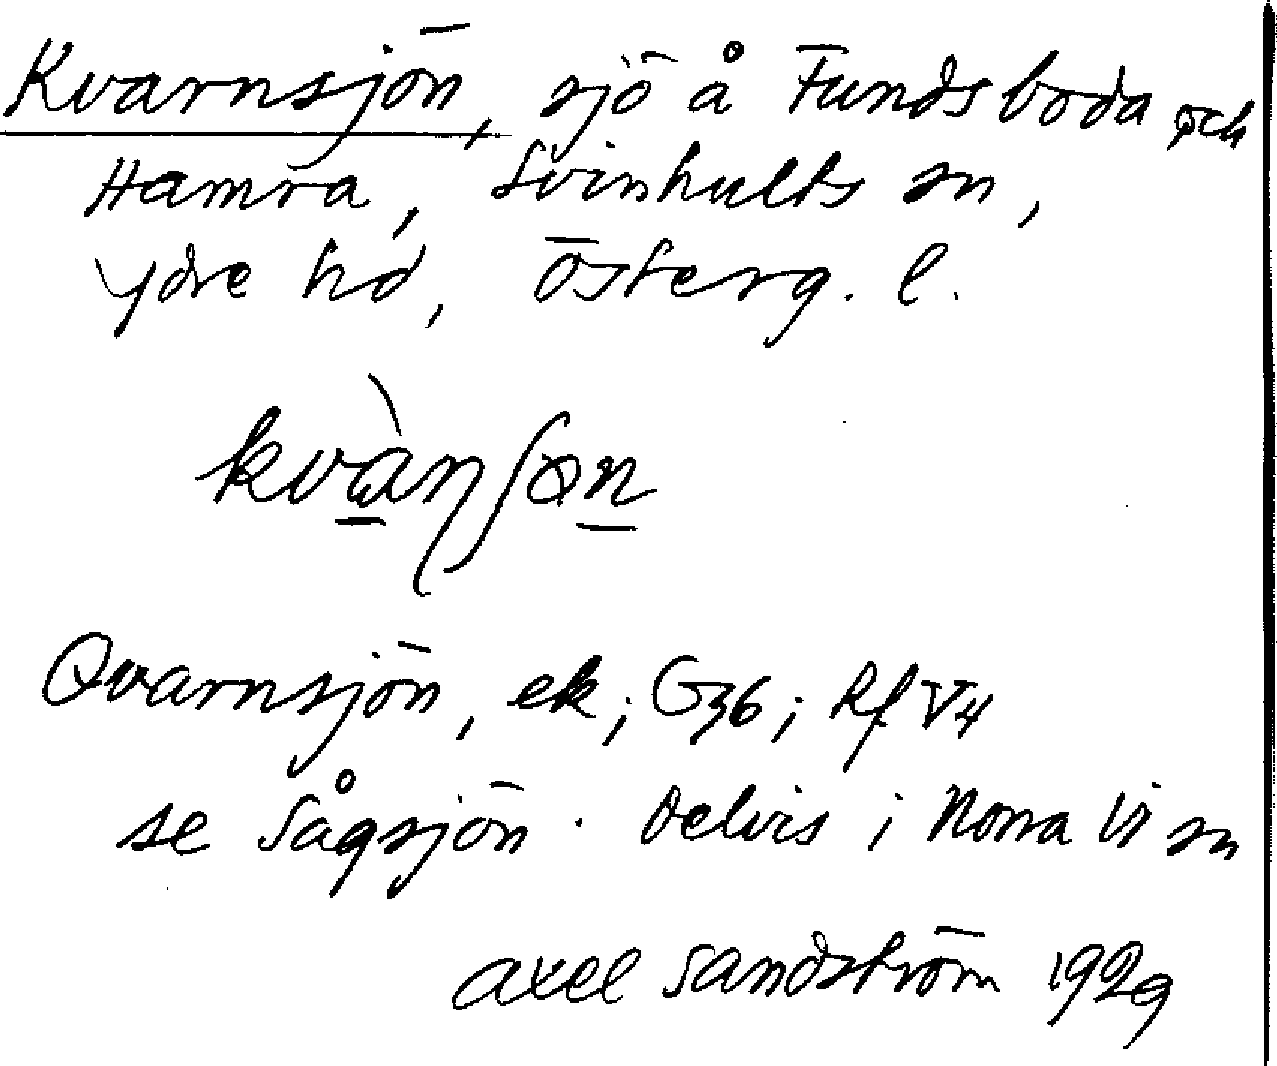 Kvarnsjön, sjö å Fundsboda och
Hamra, Svinhults sn,
Ydre hd, Österg. l.
kvànʃön
Qvarnsjön, ek; G36; Rf V4
se Sågsjön. Delvis i Norra Vi sn
Axel Sandström 1929